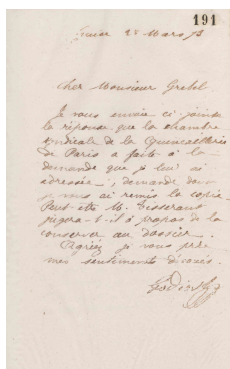 191
Mars 73
Cher Monsieur Grebel
Je vous envoie ci-jointe
la réponse que la chambre
syndicale de la Quincaillerie
de Paris a faite à la
demande que je lui ai
adressée, demande dont
je vous ai remis la copie
Peut-être M. Tisserant
jugera-t-il à propos de la
conserver au dossier.
Agréez je vous prie
mes sentiments dévoués.
Godin